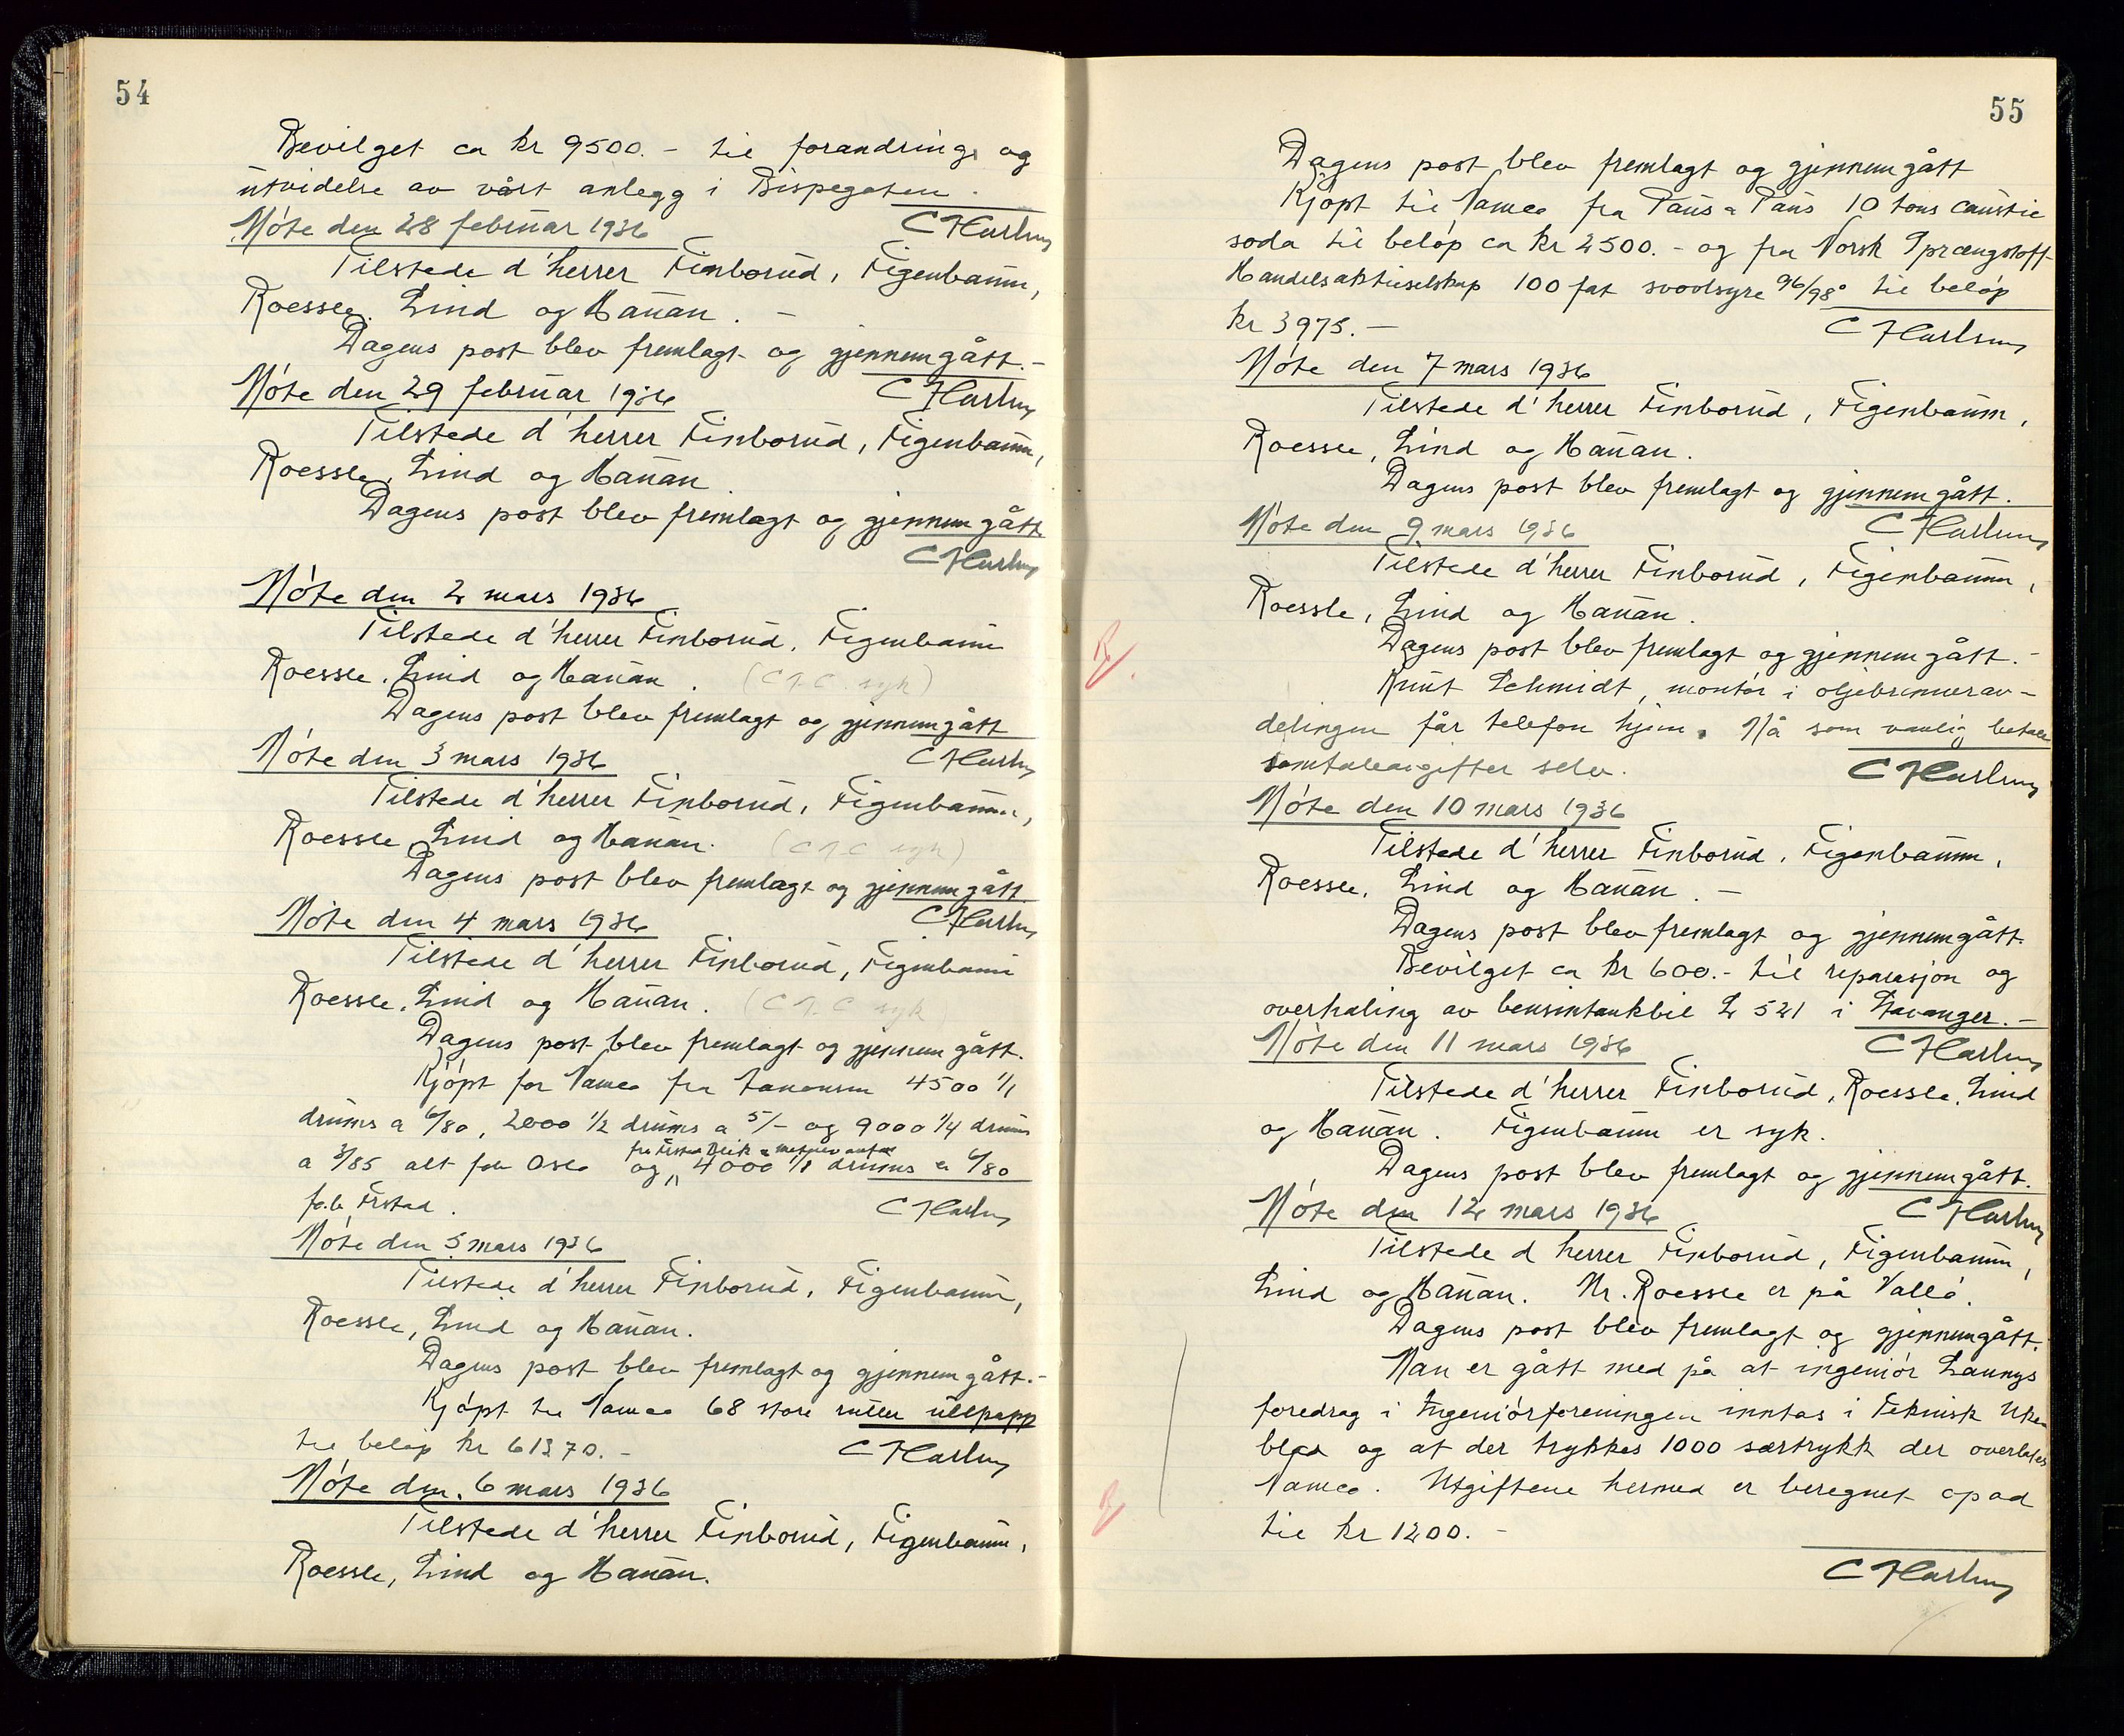 54
Bevilget ca kr 9500.- til forandring og
utvidelse av vårt anlegg i Bispegaten.
Møte den 28 februar 1936
Tilstede d'herrer Finborud, Figenbaum,
Roessle, Lind og Hanan. -
Dagens post blev fremlagt og gjennemgått.-
Møte den 29 februar 1936
Tilstede d'herrer Finborud, Figenbaum,
Roessle, Lind og Hanan
Dagens post blev fremlagt og gjennemgått
Møte den 2 mars 1936
Tilstede d'herrer Finborud, Figenbaum
Roessle, Lind og Hanan. (syk)
Dagens post blev fremlagt og gjennemgått
Møte den 3 mars 1936
Tilstede d'herrer Finborud, Figenbaum,
Roessle, Lind og Hanan. (syk)
Dagens post blev fremlagt og gjennemgått
Møte den 4 mars 1936
Tilstede d'herrer Finborud, Figenbaum
Roessle, Lind og Hanan. (syk)
Dagens post blev fremlagt og gjennemgått.
Kjøpt for Namco fra 4500 1/1
drums a 6/80, 2000 1/2 drums a 5/- og 9000 1/4 drums
a 3/85 alt fob Oslo og 4000 1/1 drums a 6/80
fob Frstad.
Møte den 5 mars 1936
Tilstede d'herrer Finborud, Figenbaum,
Roessle, Lind og Hanan.
Dagens post blev fremlagt og gjennemgått.-
Kjøpt til Namco 68 store ruller ullpapp
til beløp kr 61370.-
Møte den 6 mars 1936
Tilstede d'herrer Finborud, Figenbaum,
Roessle, Lind og Hanan.
55
Dagens post blev fremlagt og gjennemgått
Kjøpt til Namco fra Paus & Paus 10 tons caustic
soda til beløp ca kr 2500.- og fra Norsk Sprængstoff-
Handelsaktieselskap 100 fat svovlsyre 96/98° til beløp
kr 3975.-
Møte den 7 mars 1936
Tilstede d'herrer Finborud, Figenbaum,
Roessle, Lind og Hanan.
Dagens post blev fremlagt og gjennemgått.
Møte den 9 mars 1936
Tilstede d'herrer Finborud, Figenbaum,
Roessle, Lind og Hanan.
Dagens post blev fremlagt og gjennemgått.-
Knut Schmidt, montør i oljebrennerav-
delingen får telefon hjem. Må som vanlig betale
samtaleavgifter selv.
Møte den 10 mars 1936
Tilstede d'herrer Finborud, Figenbaum,
Roessle, Lind og Hanan. -
Dagens post blev fremlagt og gjennemgått.
Bevilget ca kr 600.- til reparasjon og
overhaling av bensintankbil L 521 i Stavanger.-
Møte den 11 mars 1936
Tilstede d'herrer Finborud, Roessle, Lind
og Hanan. Figenbaum er syk.
Dagens post blev fremlagt og gjennemgått.
Møte den 12 mars 1936
Tilstede d herrer Finborud, Figenbaum,
Lind og Hanan. Mr. Roessle er på Vallø.
Dagens post blev fremlagt og gjennemgått.
Man er gått med på at ingeniør Launys
foredrag i Ingeniørforeningen inntas i Teknisk Uke-
blad og at der trykkes 1000 særtrykk der overlates
Namco. Utgiftene hermed er beregnet opad
til kr 1200.-